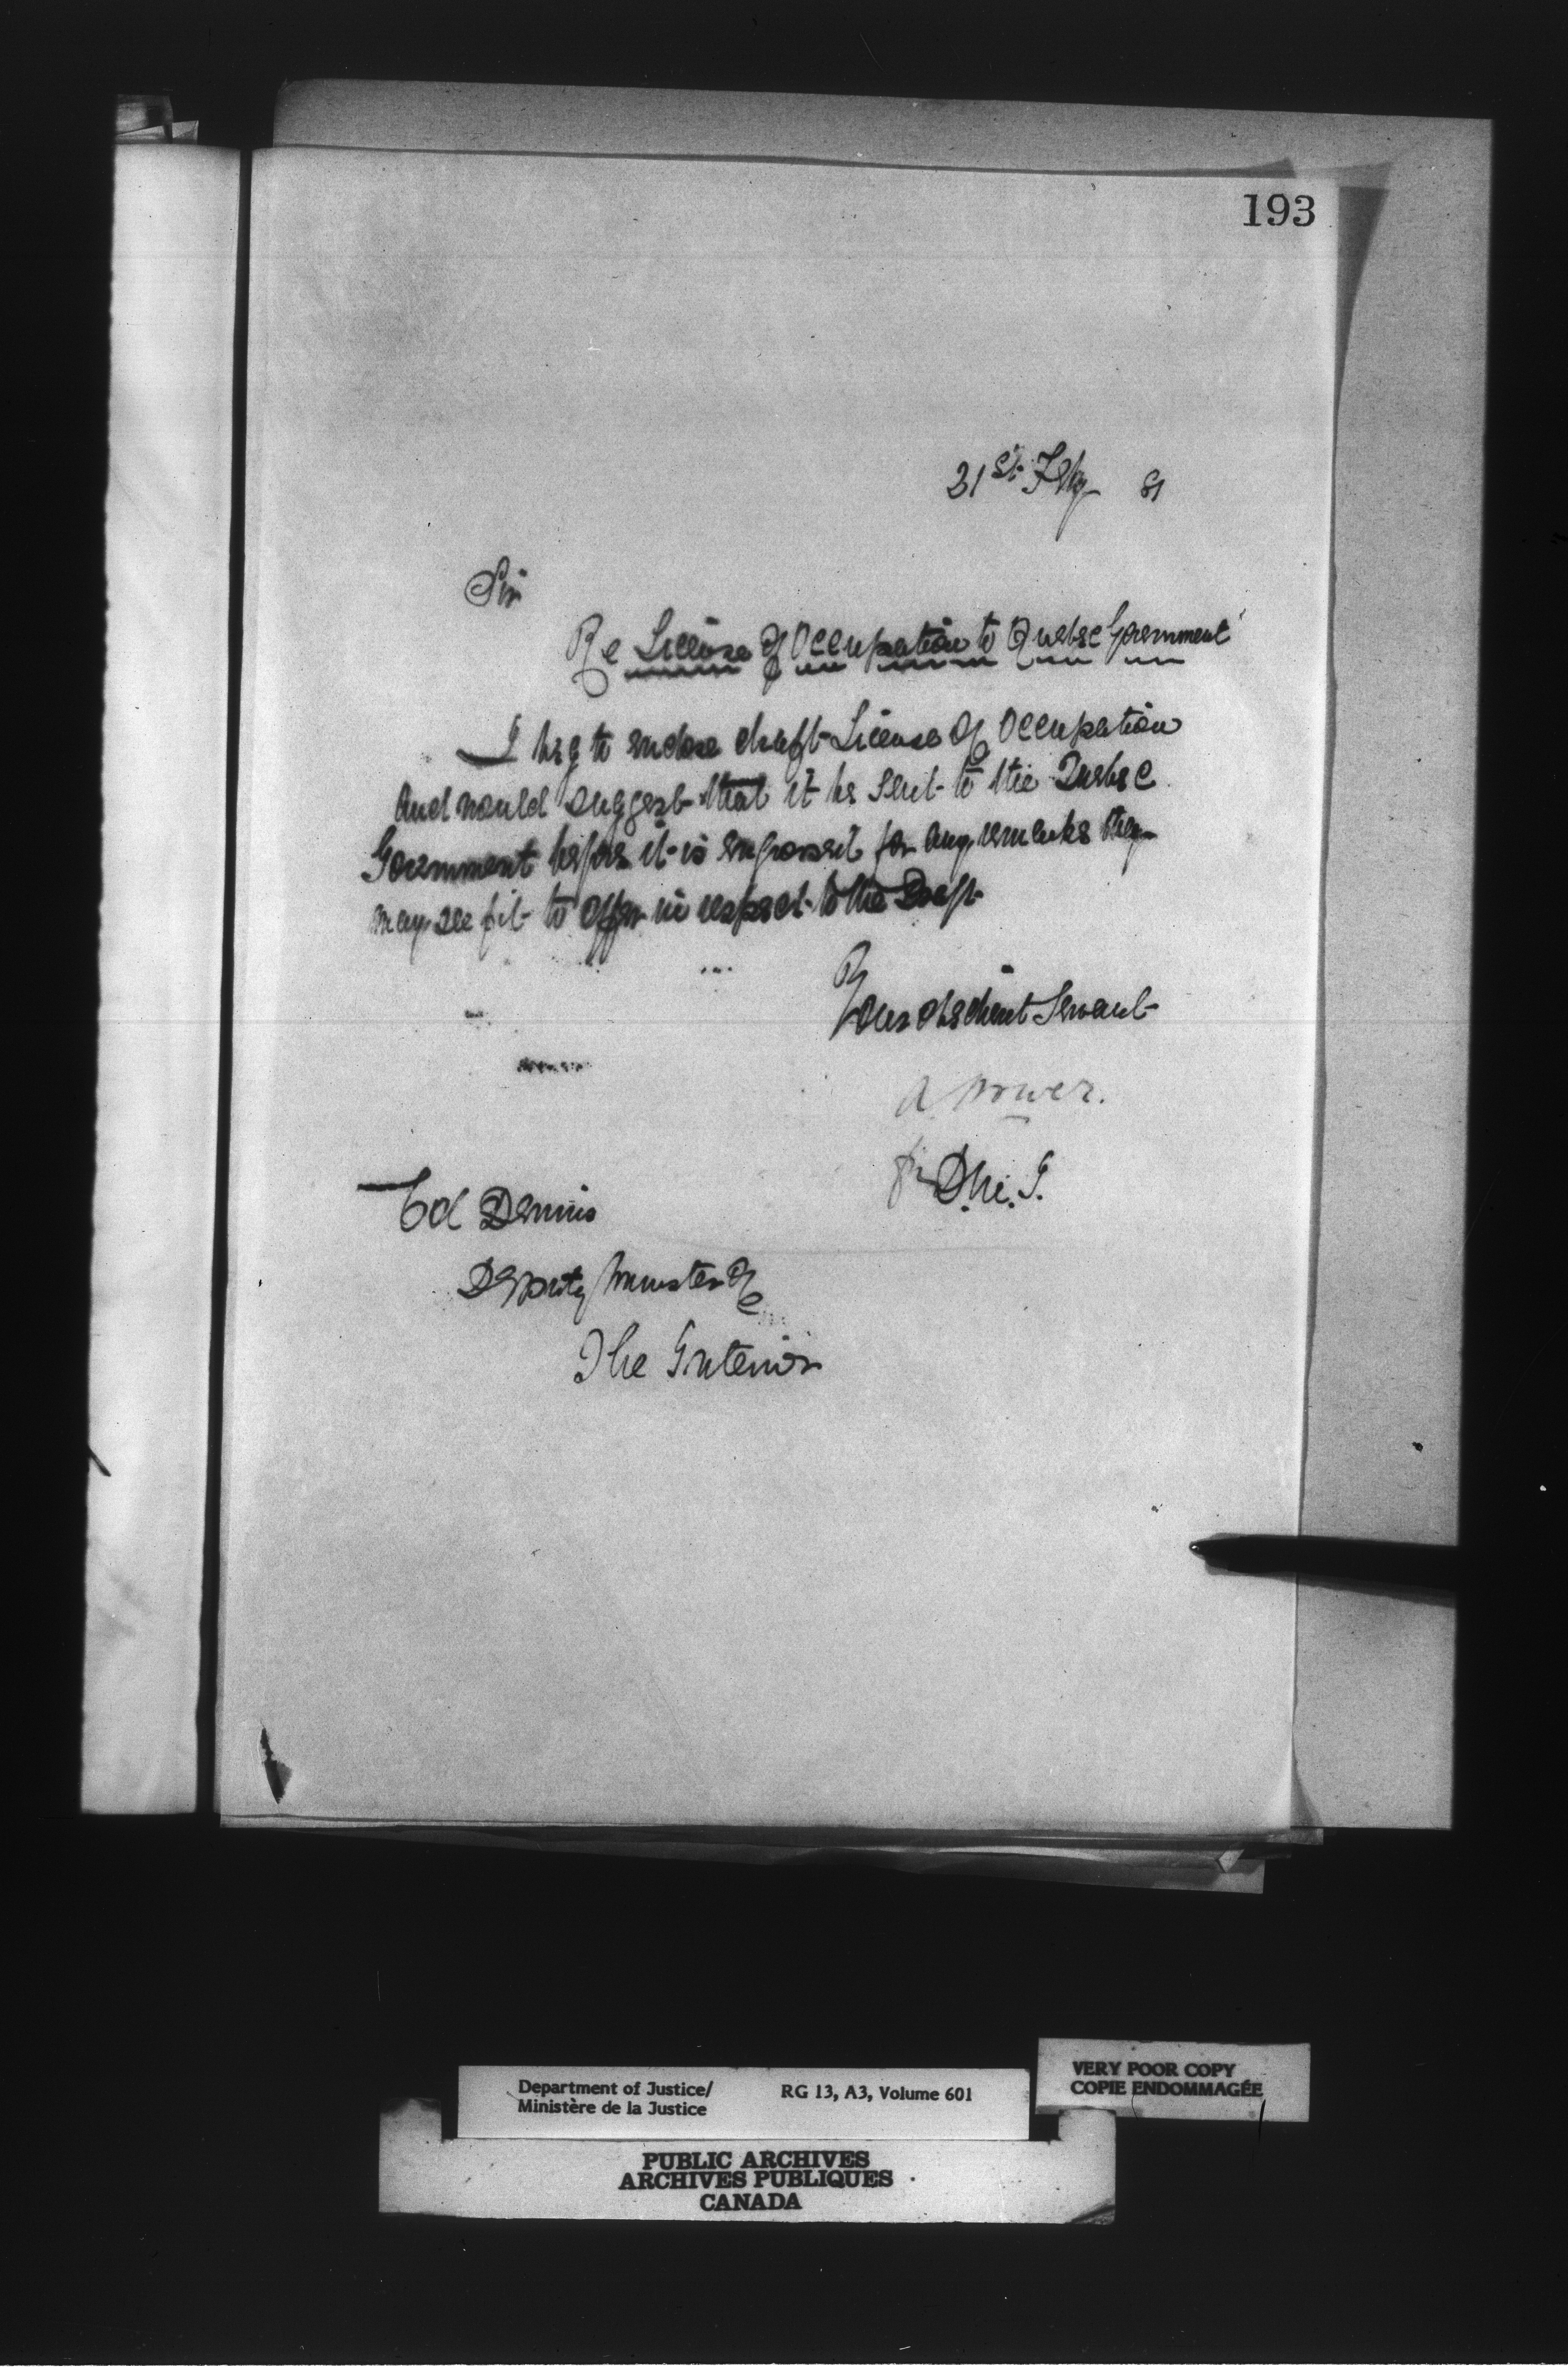 193
21st Feby 81
Sir
Re License of Occupation to Quebec Government
I beg to enclose draft License of Occupation
and would suggest that it be sent to the Quebec
Government before it is engrossed for any remarks they
may see fit to offer in respect to the Draft
Your obedient Servant
A Power.
for D.M.J.
Col Dennis
Deputy Minister of
The Interior
Department of Justice/ RG 13, A3, Volume 601
Ministère de la Justice
VERY POOR COPY
COPIE ENDOMMAGÉE
PUBLIC ARCHIVES
ARCHIVES PUBLIQUES
CANADA